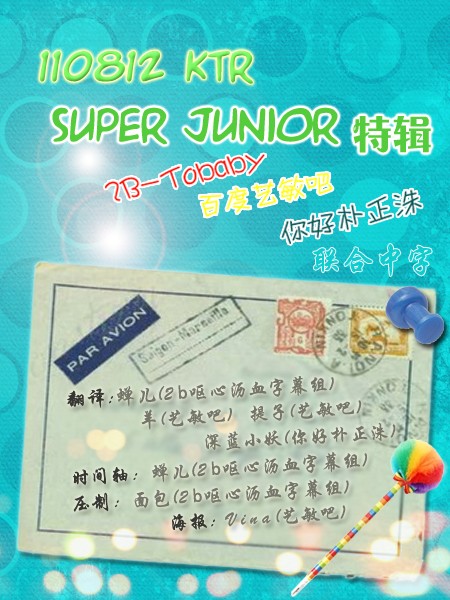 110812 KTR
SUPER JUNIOR 特辑
2B-Tobaby
百度艺敏吧
你好朴正洙
联合中字
PAR AVION
Saigon-Marseille
翻译:蝉儿(2b呕心沥血字幕组)
羊(艺敏吧) 提子(艺敏吧)
深蓝小妖(你好朴正洙)
时间轴: 蝉儿(2b呕心沥血字幕组)
压制: 面包(2b呕心沥血字幕组)
海报: Vina(艺敏吧)